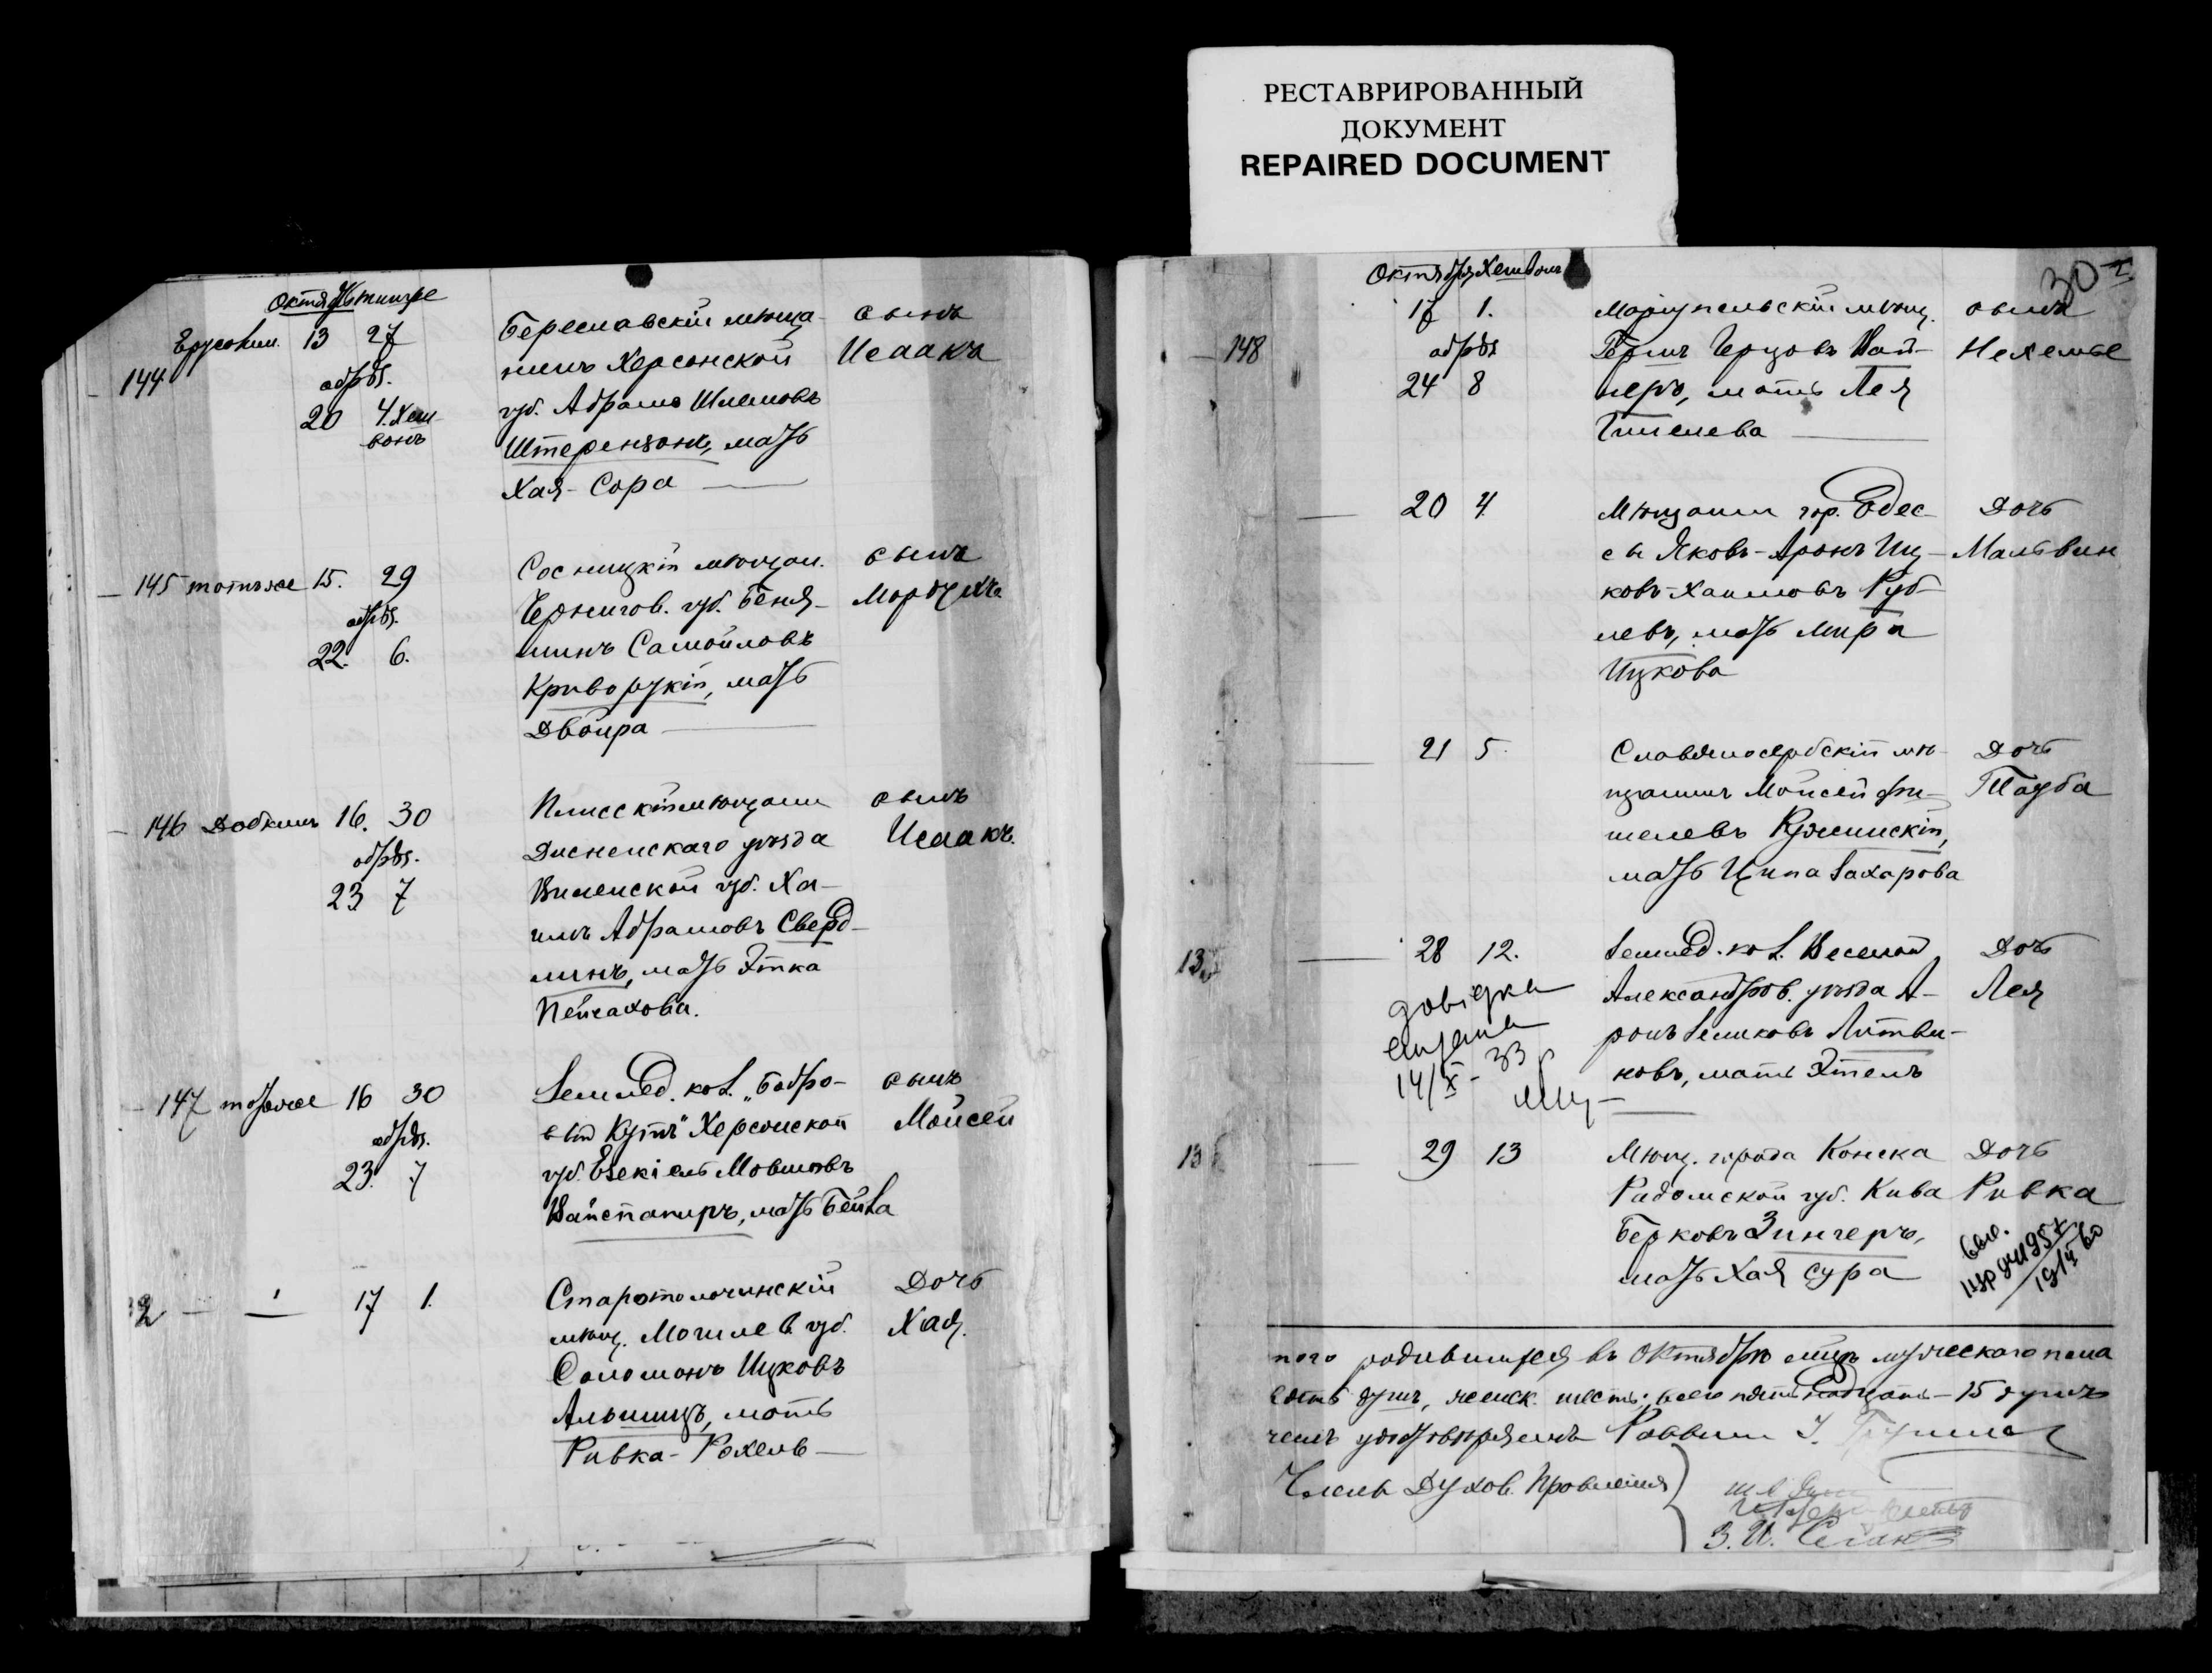 РЕСТАВРИРОВАННЫЙ
ДОКУМЕНТ
REPAIRED DOCUMENT
Октябрь тишре
Ерусалим. 13 27
144
обрѣз.
20 4. Хеш-
ванъ
Береславскій мѣща-
нинъ Херсонской
губ. Абрамъ Шлемовъ
Штерензонъ, мать
Хая-Сора
сынъ
Исаакъ
145 тотъже 15. 29
обрѣз.
22. 6.
Сосницкій мѣщан.
Чернигов. губ. Беня-
минъ Самойловъ
Криворукій, мать
Двойра
сынъ
Мордухъ
146 Добкинъ 16. 30
обрѣз.
23. 7
Плисскій мѣщанин
Дисненскаго уѣзда
Виленской губ. Ха-
имъ Абрамовъ Сверд-
линъ, мать Этка
Пейсахова.
сынъ
Исаакъ.
147 тотъже 16 30
обрѣз.
23. 7
Землед. кол. „Бобро-
вый Кутъ" Херсонской
губ. Езекіель Мовшовъ
Вайспапиръ, мать Бейла
сынъ
Мойсей
17 1.
Старотолочинскій
мѣщ. Могилев. губ.
Соломонъ Ицковъ
Альшицъ, мать
Ривка-Рохель
Дочь
Хая.
30
Октября Хешванъ
148
17 1.
обрѣз
24 8
Маріупольскій мѣщ.
Герцовъ Вай-
неръ, мать Лея
сынъ
Нехемье
20 4.
Мѣщанин гор. Одес-
сы Яковъ-Аронъ Иц-
ковъ-Хаимовъ Руб-
левъ, мать Мира
Ицкова
Дочь
Мальвин
21 5.
Славяносербскій мѣ-
щанинъ Мойсей Фи-
шелевъ
мать Ципа Захарова
Дочь
Тауба
28 12.
Землед. кол. Веселой
Александров. уѣзда А-
ронъ Зеликовъ Литви-
новъ, мать Этель
Дочь
Лея
довідка
14/X - 33 р
29 13
Мѣщ. города Конска
Радомской губ. Кива
Берковъ Зингеръ,
мать Хая Сура
Дочь
Ривка
родившихся въ Октябрѣ мцѣ мужескаго пола
душъ, женск. шесть, всего пятнадцать - 15 душъ
чемъ удостовѣряемъ Раввин
Члены Духов. Правленія